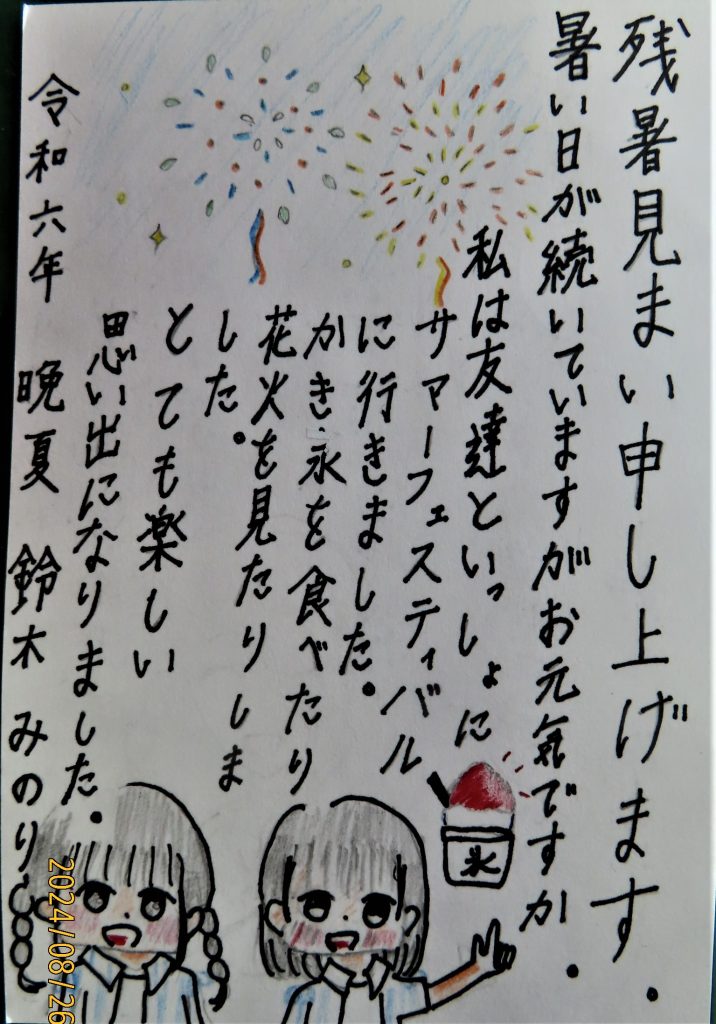 残暑見まい申し上げます。
暑い日が続いていますがお元気ですか。
私は友達といっしょに
サマーフェスティバル
に行きました。
かき氷を食べたり
花火を見たりしま
した。
とても楽しい
思い出になりました。
令和六年 晩夏 鈴木みのり
氷
2024/08/26